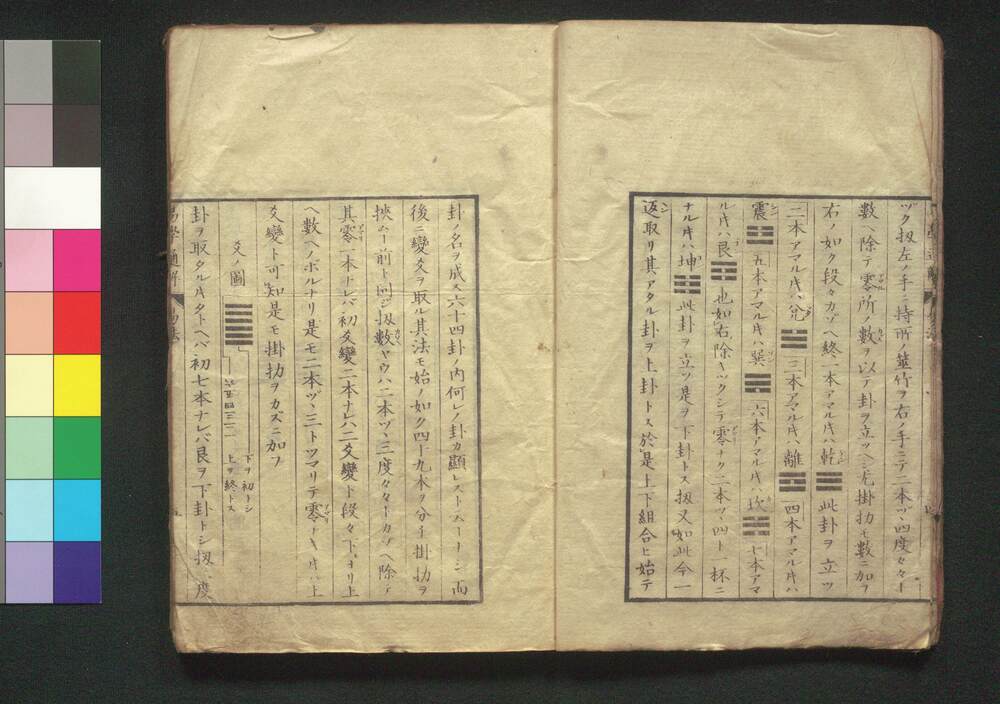 ヅク扨左ノ手ニ持所ノ筮竹ヲ右ノ手ニテ二本ヅヽ四度々々ト
数ヘ除テ零所ノ数ヲ以テ卦ヲ立ツヘシ尤掛扐モ数ニ加フ
右ノ如ク段々カゾヘ終一本アマル片ハ乾 此卦ヲ立ツ
二本アマル片ハ兌 三本アマル片ハ離 四本アマル片ハ
震 五本アマル片ハ巽 六本アマル片ハ坎 七本アマ
ル片ハ艮 也如右除キツクシテ零ナク二本ヅヽ四ト一杯ニ
ナル片ハ坤 此卦ヲ立ツ是ヲ下卦トス扨又如此今一
返取リ其アタル卦ヲ上卦トス於是上下組合セ始テ
卦ノ名ヲ成ス六十四卦ノ内何レノ卦カ顕レストイヘーナシ而
後ニ変爻ヲ取ル其法モ始ノ如ク四十九本ヲ分チ掛扐ヲ
挾ムー前ト同ジ扨数ヤウハ二本ヅヽ三度々々トカゾヘ除テ
其零一本ナレバ初爻変二本ナレハ二爻変ト段々下ヨリ上
ヘ数ヘノボルナリ是モ二本ヅヽ三トツマリテ零ナキ片ハ上
爻変ト可知是モ掛扐ヲカズニ加フ
爻ノ圖
上六五四三二一
下ヲ初トシ
上ヲ終トス
卦ヲ取タル片タトヘバ初七本ナレバ艮ヲ下卦トシ扨一度
易學通解